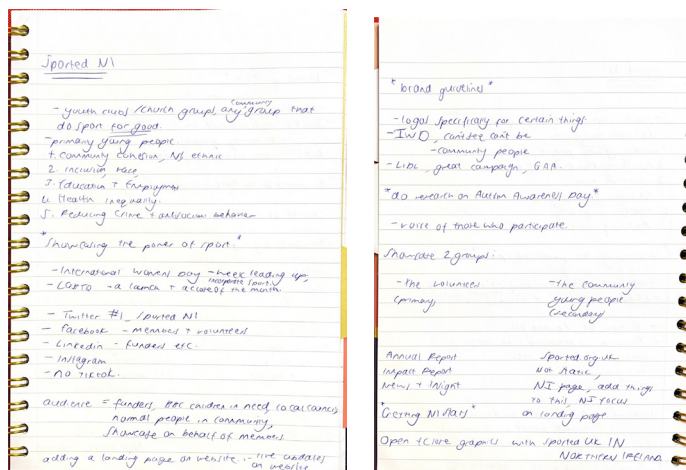 Sported NI
- youth clubs / church groups, any community group that
do sport for good.
- primary young people
1. Community cohesion, NI ethnic
2. inclusion, race,
3. Education + Employment
4. Health inequality.
5. Reducing Crime + antisocial behavior
"Showcasing the power of sport."
- International Womens Day - week leading up,
incorporate sport.
- LGBTQ - a launch + a close of the month.
- Twitter #1_ /sported NI
- Facebook - members + volunteers
- Linkedin - funders etc.
- Instagram
- no tiktok.
audience = funders, BBC children in need, local councils
normal people in community,
Showcase on behalf of members
adding a landing page on website - live updates
on website
"brand guidelines"
- logos specificay for certain things.
- IWD, cant see cant be
- community people
- LIDL, great campaign, GAA.
*do research on Autism Awareness Day*
- voice of those who participate.
Showcase 2 groups:
- The volunteers - the community
(primary) young people
(secondary)
Annual Report sported.org.uk
Impact Report Not static,
News + Insight NI page, add things
to this, NI focus
"Getting NI stats" on landing page
Open + close graphics with Sported UK IN
NORTHERN IRELAND.